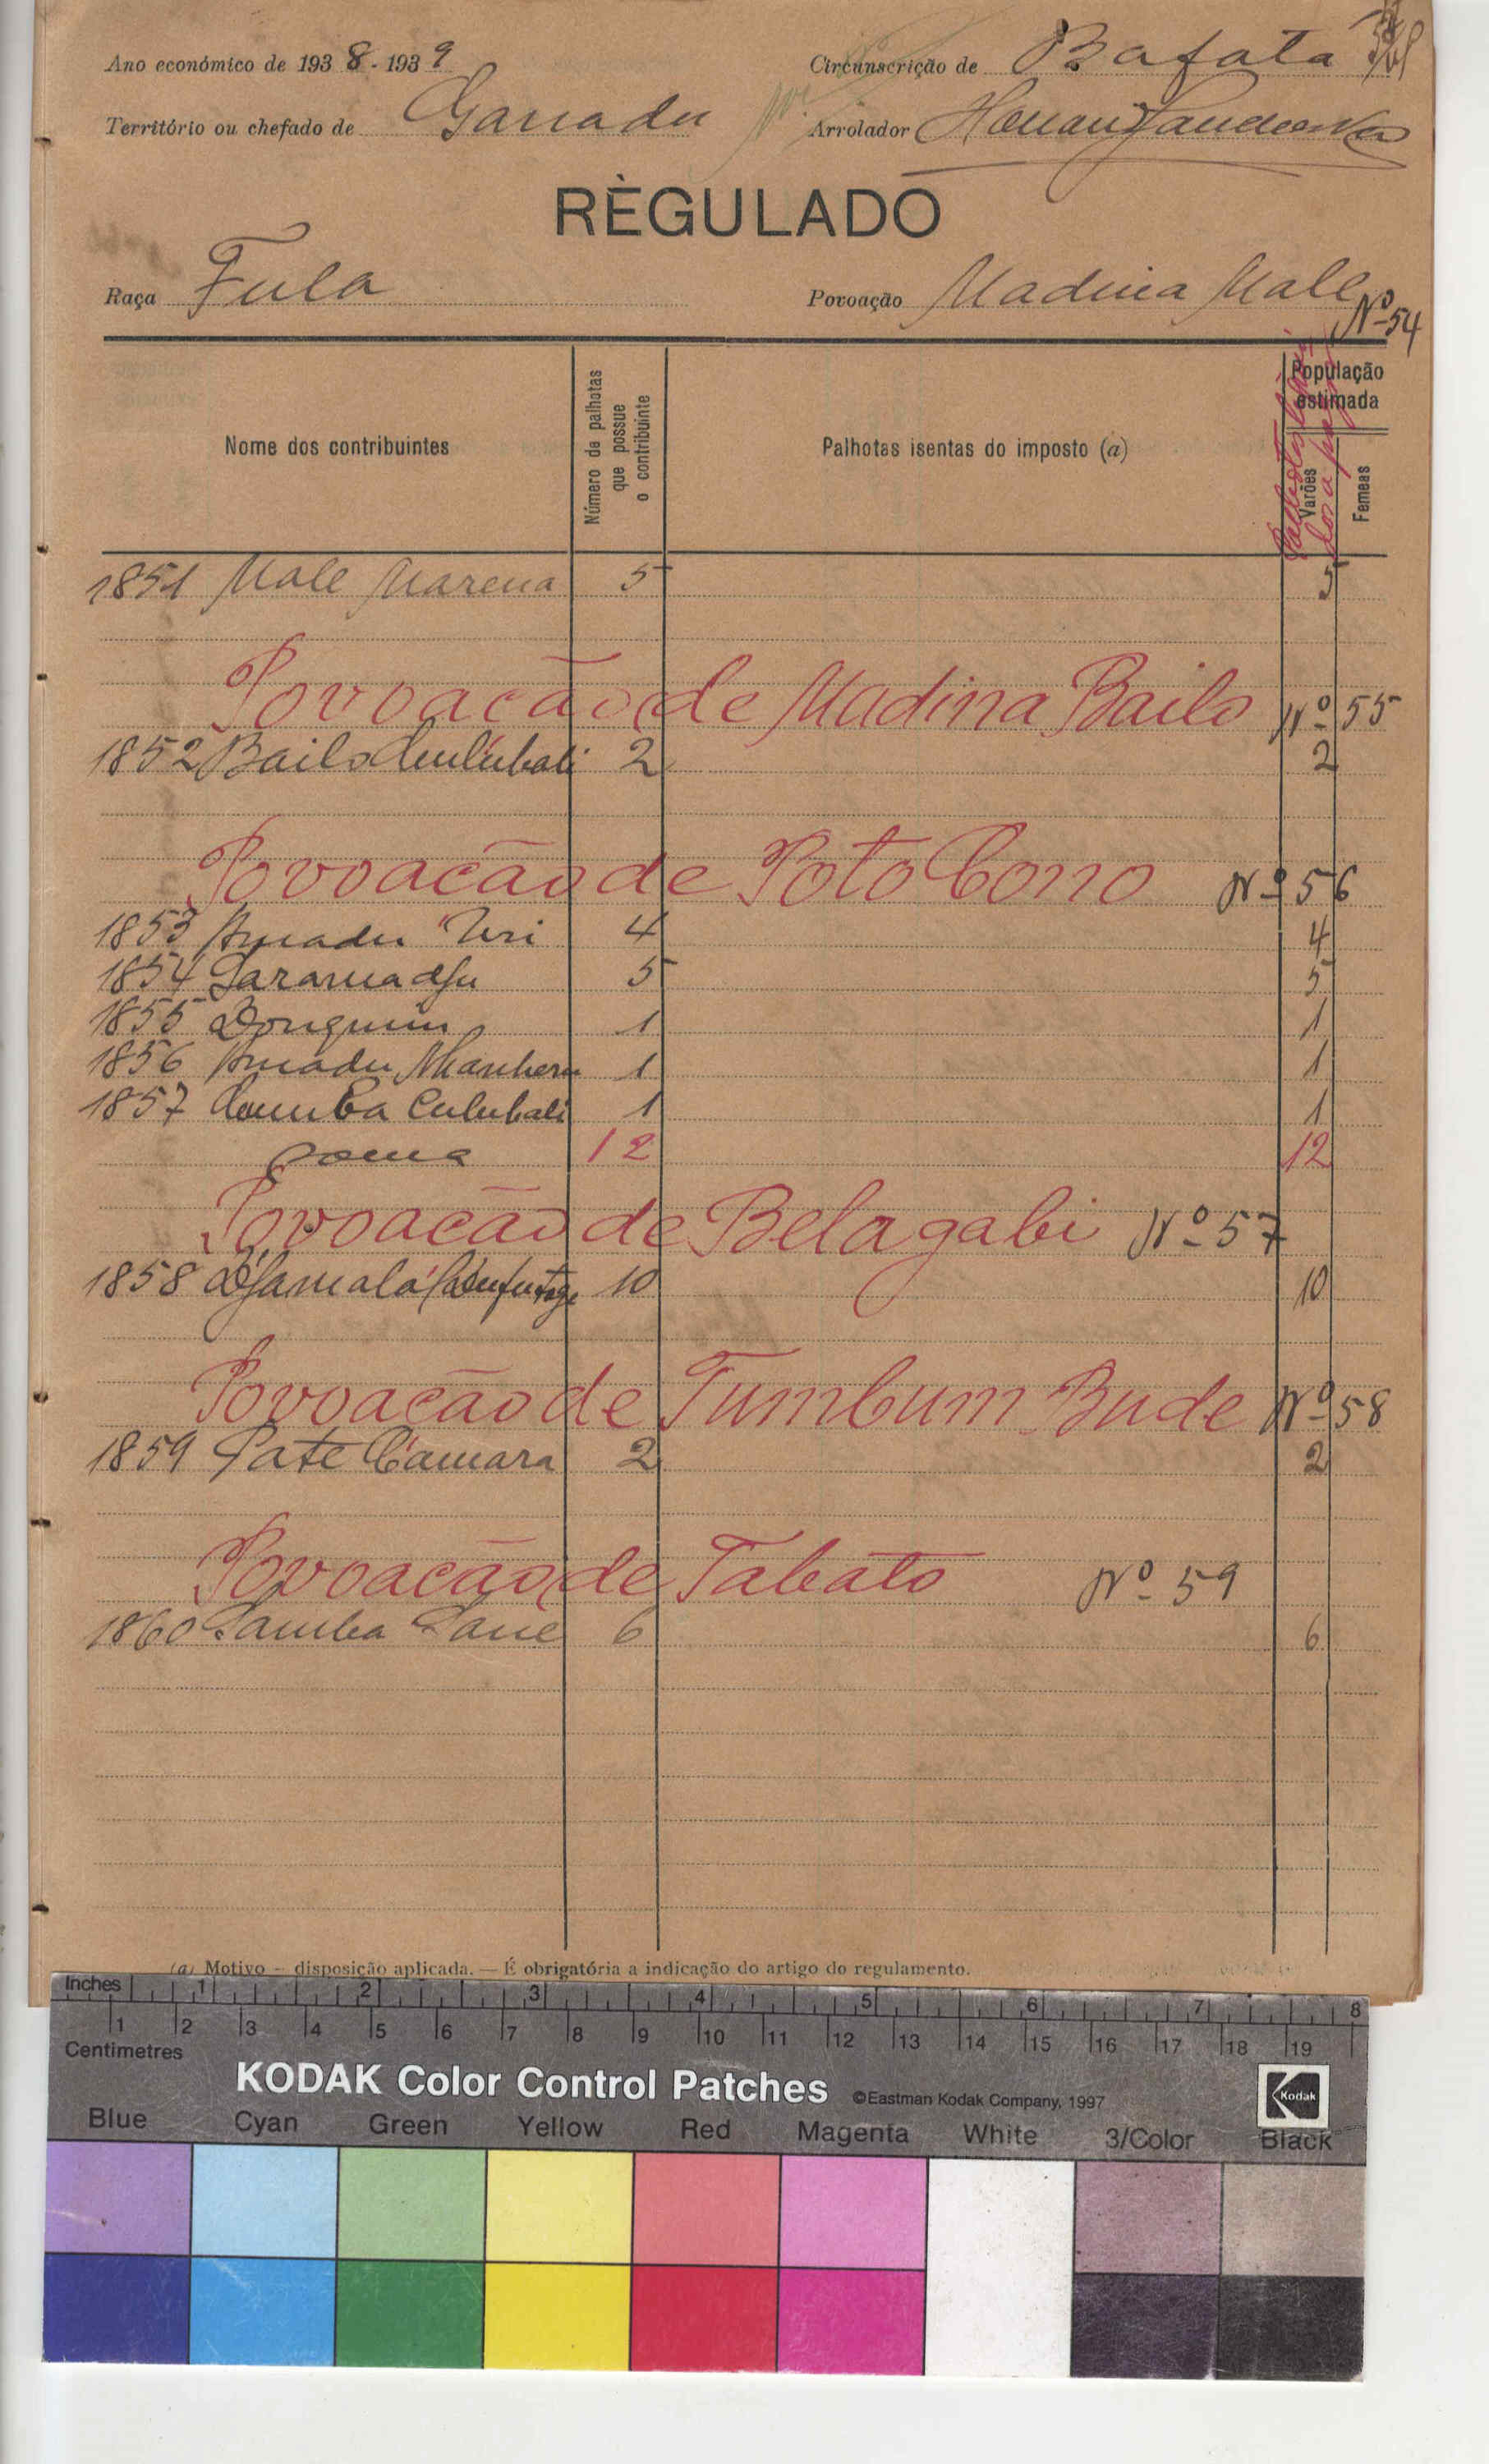 Ano económico de 1938-1939
Circunscrição de Bafata
Território ou chefado de Ganadu
Arrolador
RÈGULADO
Raça Fula
Povoação Madina Male
Nº 54
Nome dos contribuintes
Número de palhotas que possue o contribuinte
Palhotas isentas do imposto (a)
População estimada
Varões
Femeas
1851 Male Marena 5 5
Povoacão de Madina Bailo Nº 55
1852 Bailo Culubali 2 2
Povoacão de Poto Cono Nº 56
1853 Amadu Uri 4 4
1854 Saramadju 5 5
1855 Donquim 1 1
1856 Amadu 1 1
1857 Cumba Culubali 1 1
Soma 12 12
Povoacão de Belagabi Nº 57
1858 10 10
Povoacão de Tumbum Bude Nº 58
1859 Pate Camara 2 2
Povoacão de Tabato Nº 59
1860 Samba Sane 6 6
(a) Motivo — disposição aplicada. — É obrigatória a indicação do artigo do regulamento.
Inches 1 2 3 4 5 6 7 8
1 2 3 4 5 6 7 8 9 10 11 12 13 14 15 16 17 18 19
Centimetres
KODAK Color Control Patches ©Eastman Kodak Company, 1997 Kodak
Blue Cyan Green Yellow Red Magenta White 3/Color Black